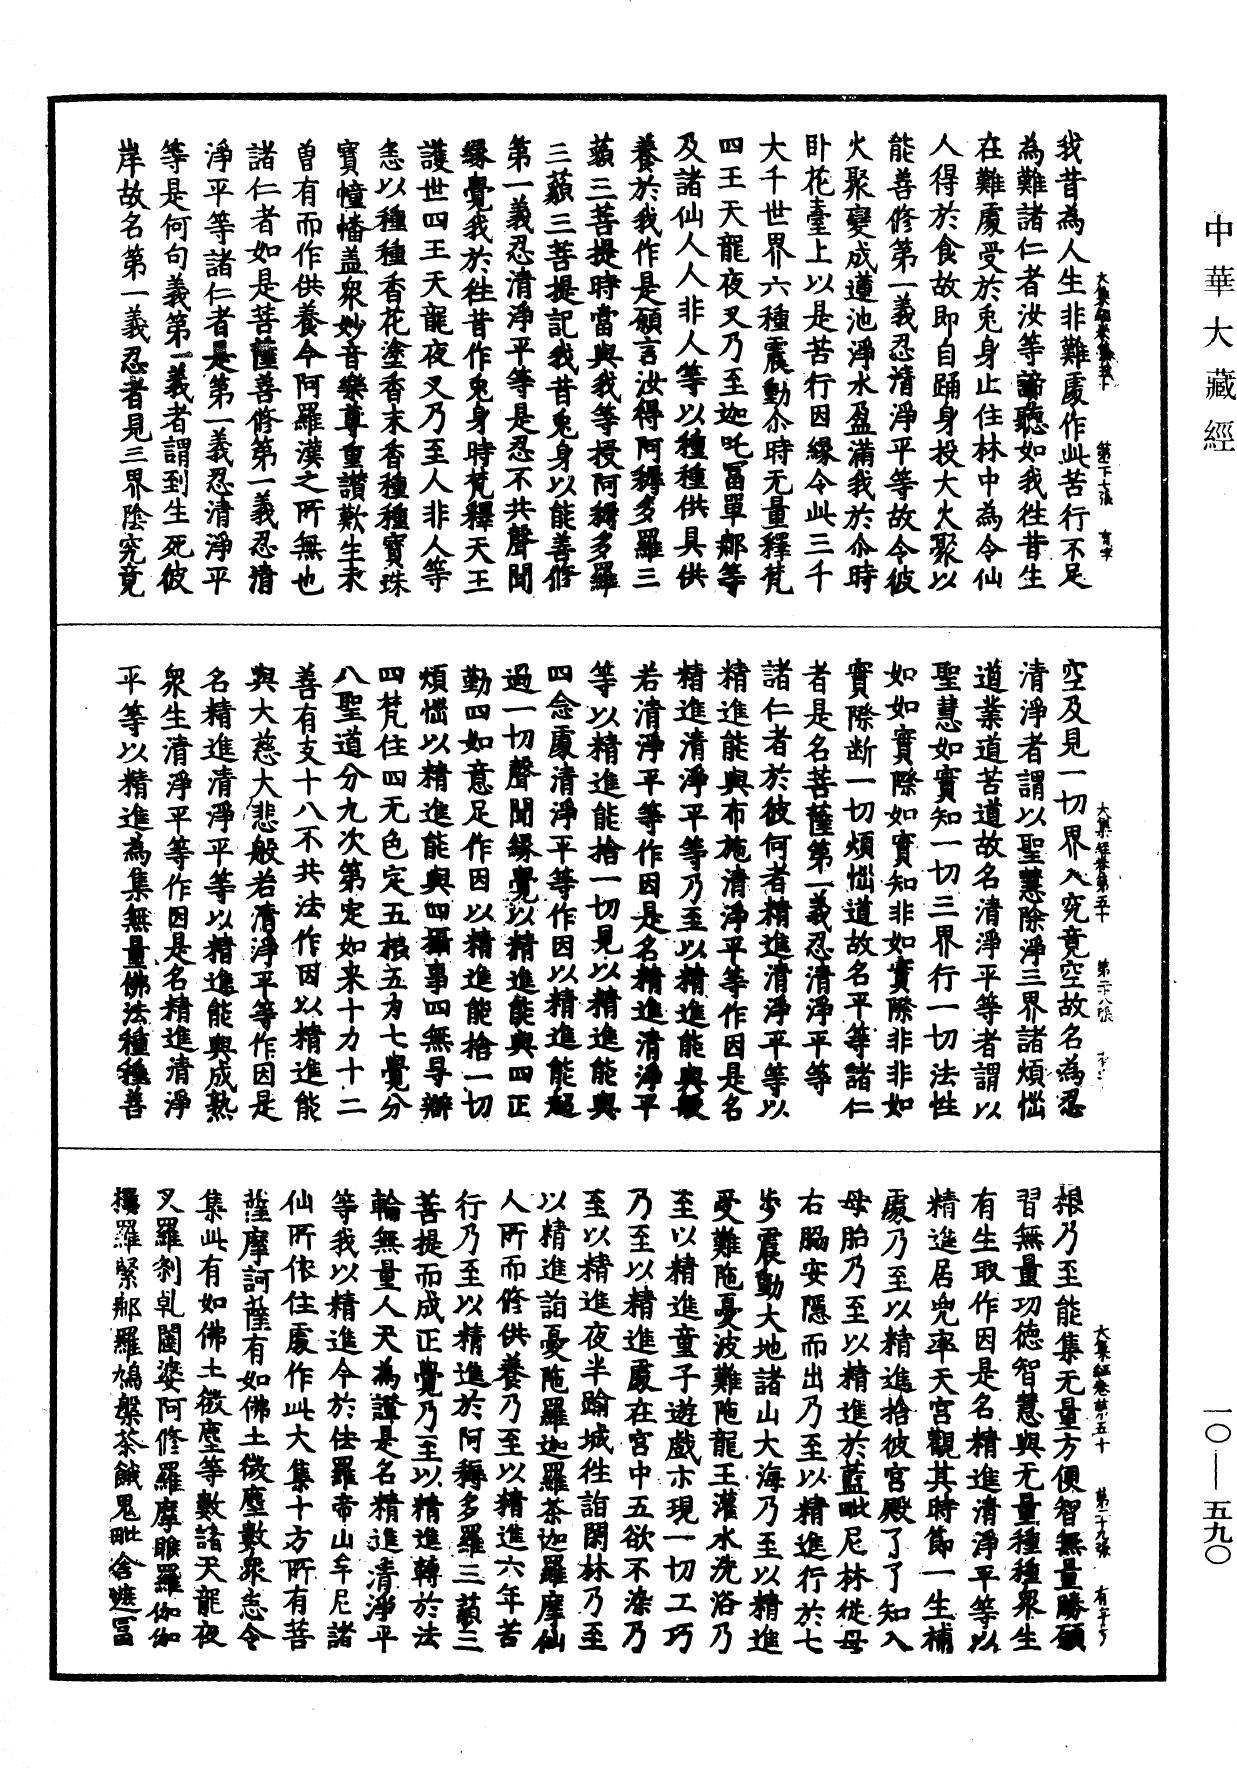 中華大藏經
我昔為人生非難處作此苦行不足
為難諸仁者汝等諦聽如我徃昔生
在難處受於兎身止住林中為令仙
人得於食故即自踊身投大火聚以
能善修第一義忍清淨平等故令彼
火聚變成蓮池淨水盈滿我於尒時
卧花臺上以是苦行因緣令此三千
大千世界六種震動尒時无量釋梵
四王天龍夜叉乃至迦吒富單那等
及諸仙人人非人等以種種供具供
養於我作是願言汝得阿耨多羅三
藐三菩提時當與我等授阿耨多羅
三藐三菩提記我昔兎身以能善修
第一義忍清淨平等是忍不共聲聞
緣覺我於徃昔作兎身時梵釋天王
護世四王天龍夜叉乃至人非人等
悉以種種香花塗香末香種種寶珠
寶幢幡盖衆妙音樂尊重讃歎生未
曽有而作供養今阿羅漢之所無也
諸仁者如是菩薩善修第一義忍清
淨平等諸仁者是第一義忍清淨平
等是何句義第一義者謂到生死彼
岸故名第一義忍者見三界陰究竟
大集經卷第五十　第二十八張
空及見一切界入究竟空故名為忍
清淨者謂以聖慧除淨三界諸煩惱
道業道苦道故名清淨平等者謂以
聖慧如實知一切三界行一切法性
如如實際如實知非如實際非非如
實際断一切煩惱道故名平等諸仁
者是名菩薩第一義忍清淨平等
諸仁者於彼何者精進清淨平等以
精進能與布施清淨平等作因是名
精進清淨平等乃至以精進能與般
若清淨平等作因是名精進清淨平
等以精進能捨一切見以精進能與
四念處清淨平等作因以精進能超
過一切聲聞緣覺以精進能與四正
勤四如意足作因以精進能捨一切
煩惱以精進能與四攝事四無㝵辯
四梵住四无色定五根五力七覺分
八聖道分九次第定如来十力十二
善有支十八不共法作因以精進能
與大慈大悲般若清淨平等作因是
名精進清淨平等以精進能與成熟
衆生清淨平等作因是名精進清淨
平等以精進為集無量佛法種種善
大集經卷第五十　第二十九張
根乃至能集无量方便智無量勝願
習無量功德智慧與无量種種衆生
有生取作因是名精進清淨平等以
精進居兠率天宮觀其時節一生補
處乃至以精進捨彼宮殿了了知入
母胎乃至以精進於藍毗尼林從母
右脇安隱而出乃至以精進行於七
步震動大地諸山大海乃至以精進
受難陁憂波難陁龍王灌水洗浴乃
至以精進童子遊戲示現一切工巧
乃至以精進處在宮中五欲不染乃
至以精進夜半踰城徃詣閑林乃至
以精進詣憂陁羅迦羅茶迦羅摩仙
人所而修供養乃至以精進六年苦
行乃至以精進於阿耨多羅三藐三
菩提而成正覺乃至以精進轉於法
輪無量人天為證是名精進清淨平
等我以精進今於佉羅帝山牟尼諸
仙所依住處作此大集十方所有菩
薩摩訶薩有如佛土微塵數衆悉令
集此有如佛土微塵等數諸天龍夜
叉羅刹乹闥婆阿修羅摩睺羅伽伽
樓羅緊那羅鳩槃茶餓鬼毗舍遮富
一〇—五九〇